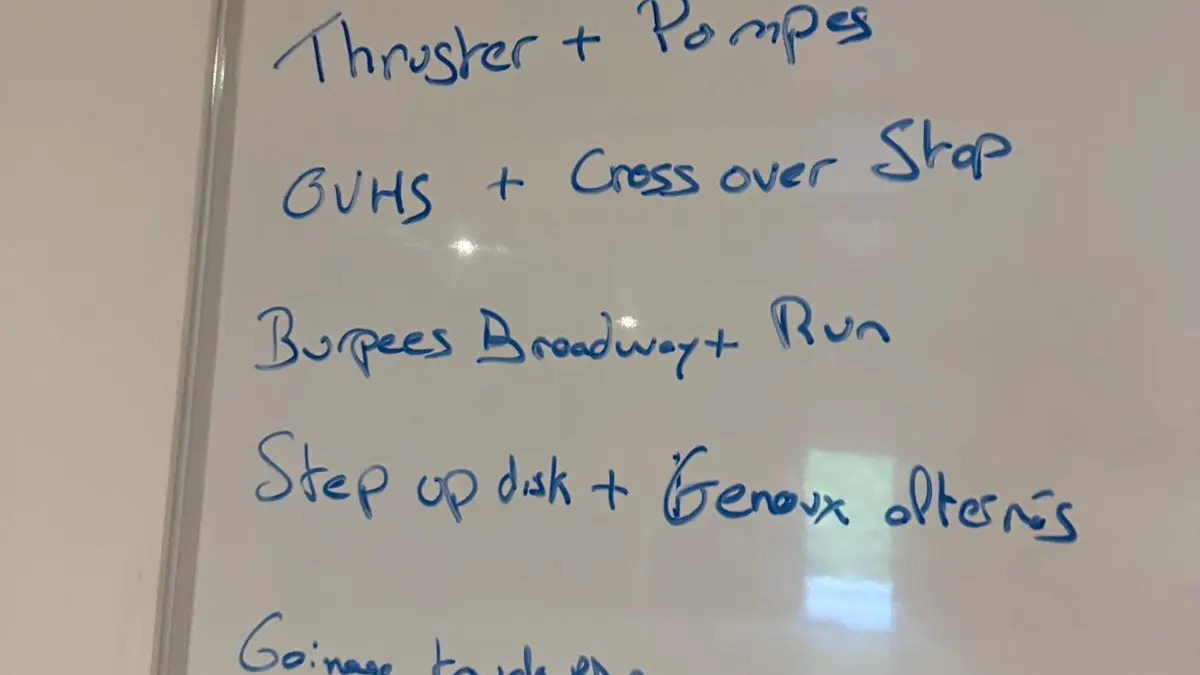 Thruster + Pompes
OVHS + Cross over Step
Burpees Broadway + Run
Step up disk + Genoux alternés
Gainage